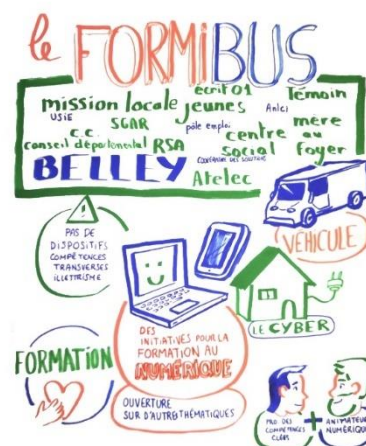 le FORMIBUS
écrit 01 Témoin
mission locale jeunes
USIE Anlci
SGAR pôle emploi mère
c.c. centre au
conseil départemental RSA social foyer
BELLEY
Atelec
PAS DE
DISPOSITIFS
COMPÉTENCES
TRANSVERSES
ILLETTRISME
VÉHICULE
LE CYBER
DES
INITIATIVES POUR LA
FORMATION AU
NUMÉRIQUE
FORMATION
OUVERTURE
SUR D'AUTRES THÉMATIQUES
PRO. DES
COMPÉTENCES
CLEFS
+
ANIMATEUR
NUMÉRIQUE